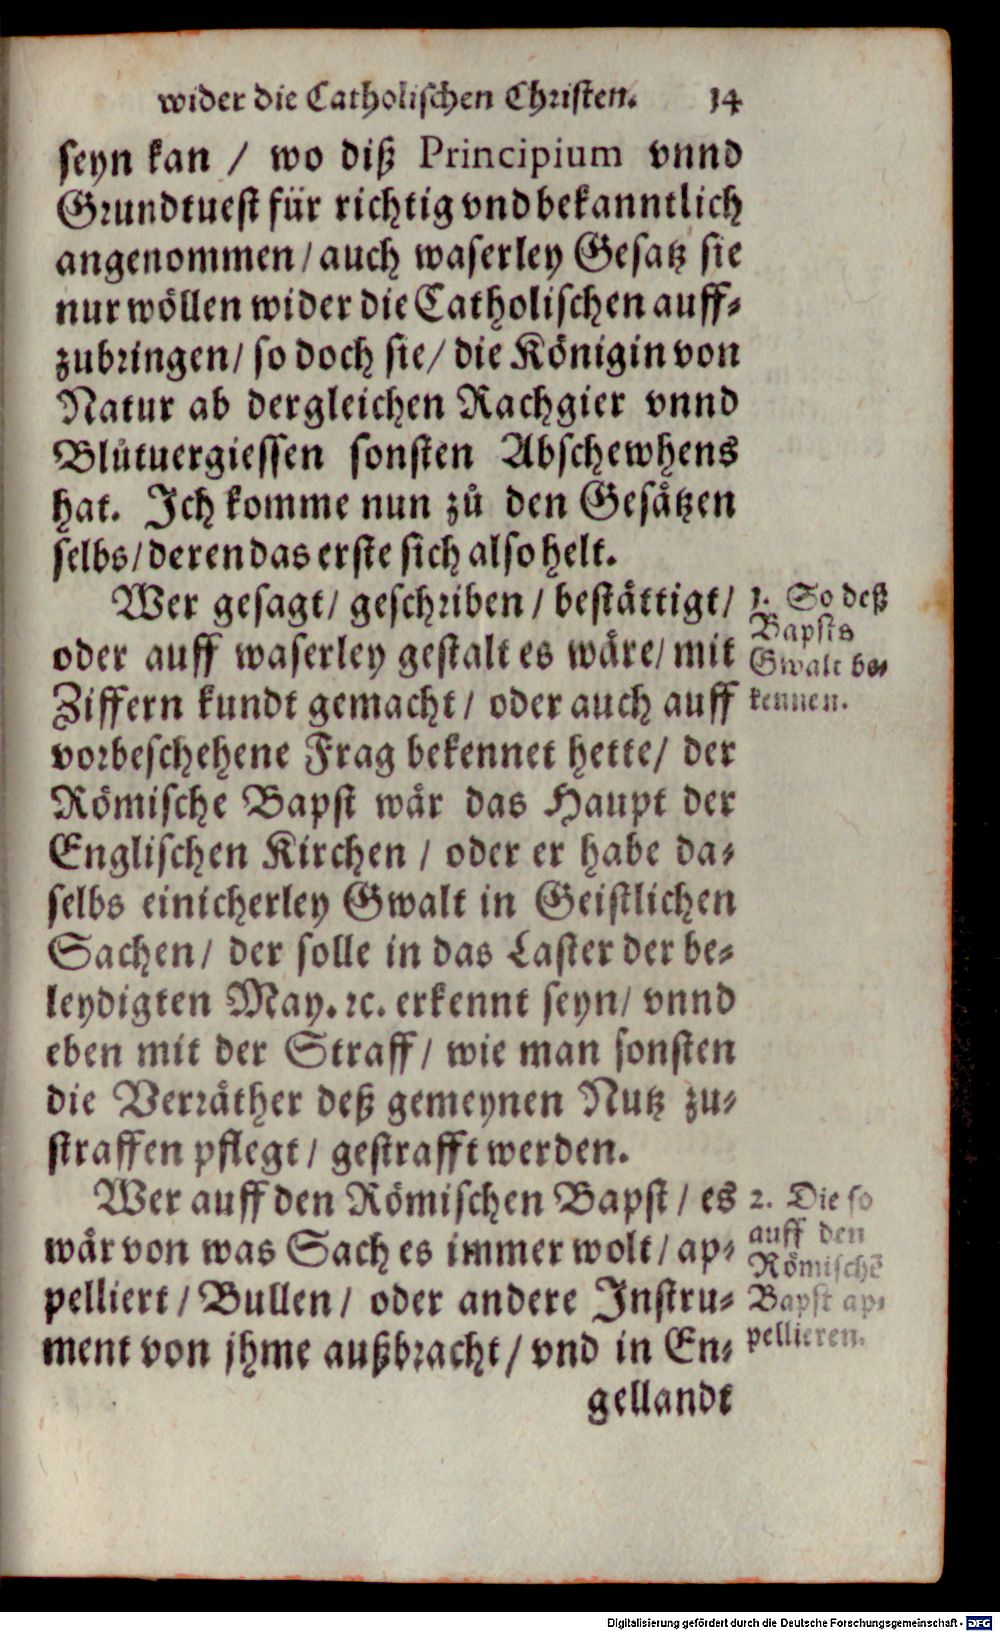 wider die Catholischen Christen. 14
seyn kan / wo diß Principium vnnd
Grundtuest für richtig vnd bekanntlich
angenommen / auch waserley Gesatz sie
nur wöllen wider die Catholischen auff-
zubringen / so doch sie / die Königin von
Natur ab dergleichen Rachgier vnnd
Blůtuergiessen sonsten Abschewhens
hat. Ich komme nun zů den Gesätzen
selbs / deren das erste sich also helt.
Wer gesagt / geschriben / bestättigt /
oder auff waserley gestalt es wäre / mit
Ziffern kundt gemacht / oder auch auff
vorbeschehene Frag bekennet hette / der
Römische Bapst wär das Haupt der
Englischen Kirchen / oder er habe da-
selbs einicherley Gwalt in Geistlichen
Sachen / der solle in das Laster der be-
leydigten May. ꝛc. erkennt seyn / vnnd
eben mit der Straff / wie man sonsten
die Verräther deß gemeynen Nutz zu-
straffen pflegt / gestrafft werden.
1. So deß
Bapsts
Gwalt be-
kennen.
Wer auff den Römischen Bapst / es
wär von was Sach es immer wolt / ap-
pelliert / Bullen / oder andere Instru-
ment von jhme außbracht / vnd in En-
gellandt
2. Die so
auff den
Römischē
Bapst ap-
pellieren.
Digitalisierung gefördert durch die Deutsche Forschungsgemeinschaft - DFG